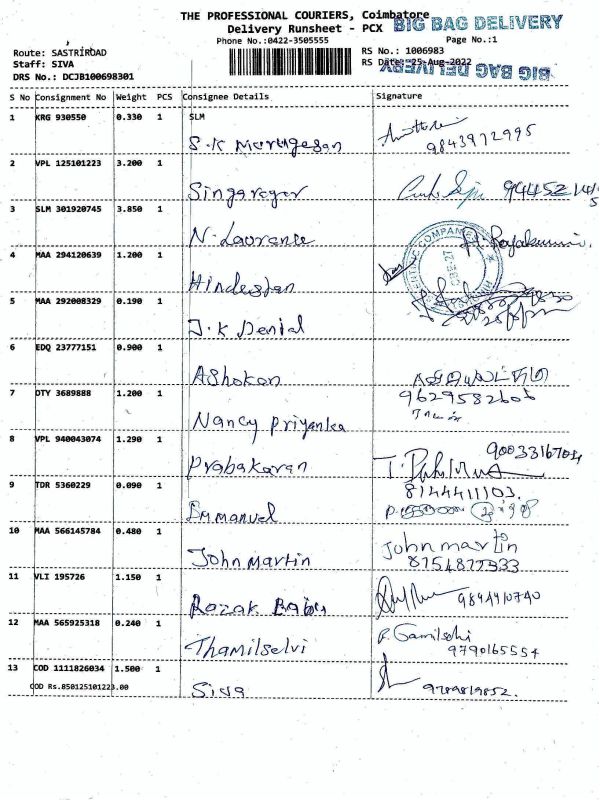 THE PROFESSIONAL COURIERS, Coimbatore
Delivery Runsheet - PCX BIG BAG DELIVERY
Phone No.:0422-3505555 Page No.:1
Route: SASTRIROAD RS No.: 1006983
Staff: SIVA RS Date: 25-Aug-2022 BIG BAG DELIVERY
DRS No.: DCJB100698301
S No Consignment No Weight PCS Consignee Details Signature
1 KRG 930550 0.330 1 SLM
S.K Murugesan 9843972995
2 VPL 125101223 3.200 1
Singaravar
3 SLM 301920745 3.850 1
N. Laurance
4 MAA 294120639 1.200 1
Hindustan
5 MAA 292008329 0.190 1
J.K Denial
6 EDQ 23777151 0.900 1
Ashokan
7 DTY 3689888 1.200 1 9629582606
Nancy Priyanka
8 VPL 940043074 1.290 1
Prabakaran
9 TDR 5360229 0.090 1 8144411103.
Emmanuel
10 MAA 566145784 0.480 1
John martin John martin
8754877933
11 VLI 195726 1.150 1
Razak Babu 9894910740
12 MAA 565925318 0.240 1
Thamilselvi 9790165554
13 COD 1111826034 1.500 1
COD Rs.850125101223.00
Siva 9789819852.